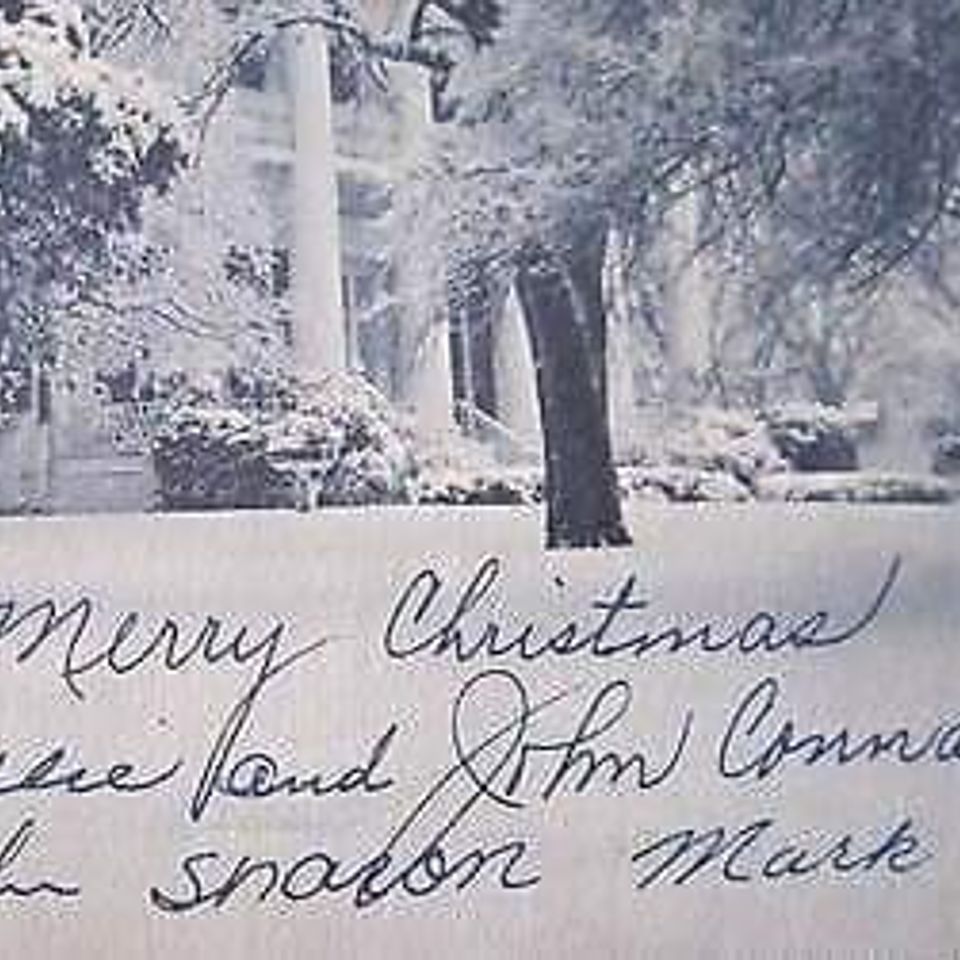 Merry Christmas
and John Conna
Sharon Mark